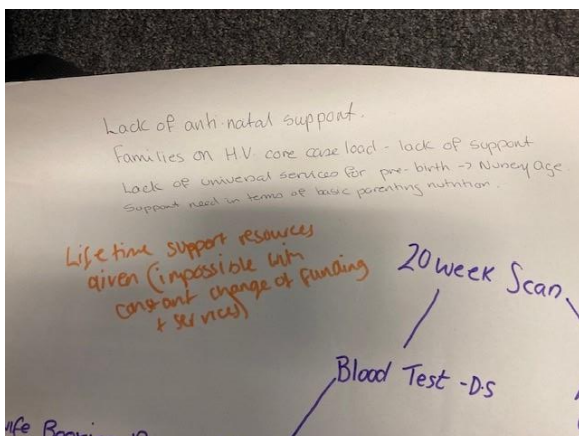 Lack of anti-natal support.
Families on HV core case load - lack of support
Lack of universal services for pre-birth -> Nursery Age.
Support need in terms of basic parenting nutrition.
Lifetime support resources
given (impossible with
constant change of funding
+ services)
20 week Scan
Blood Test - DS